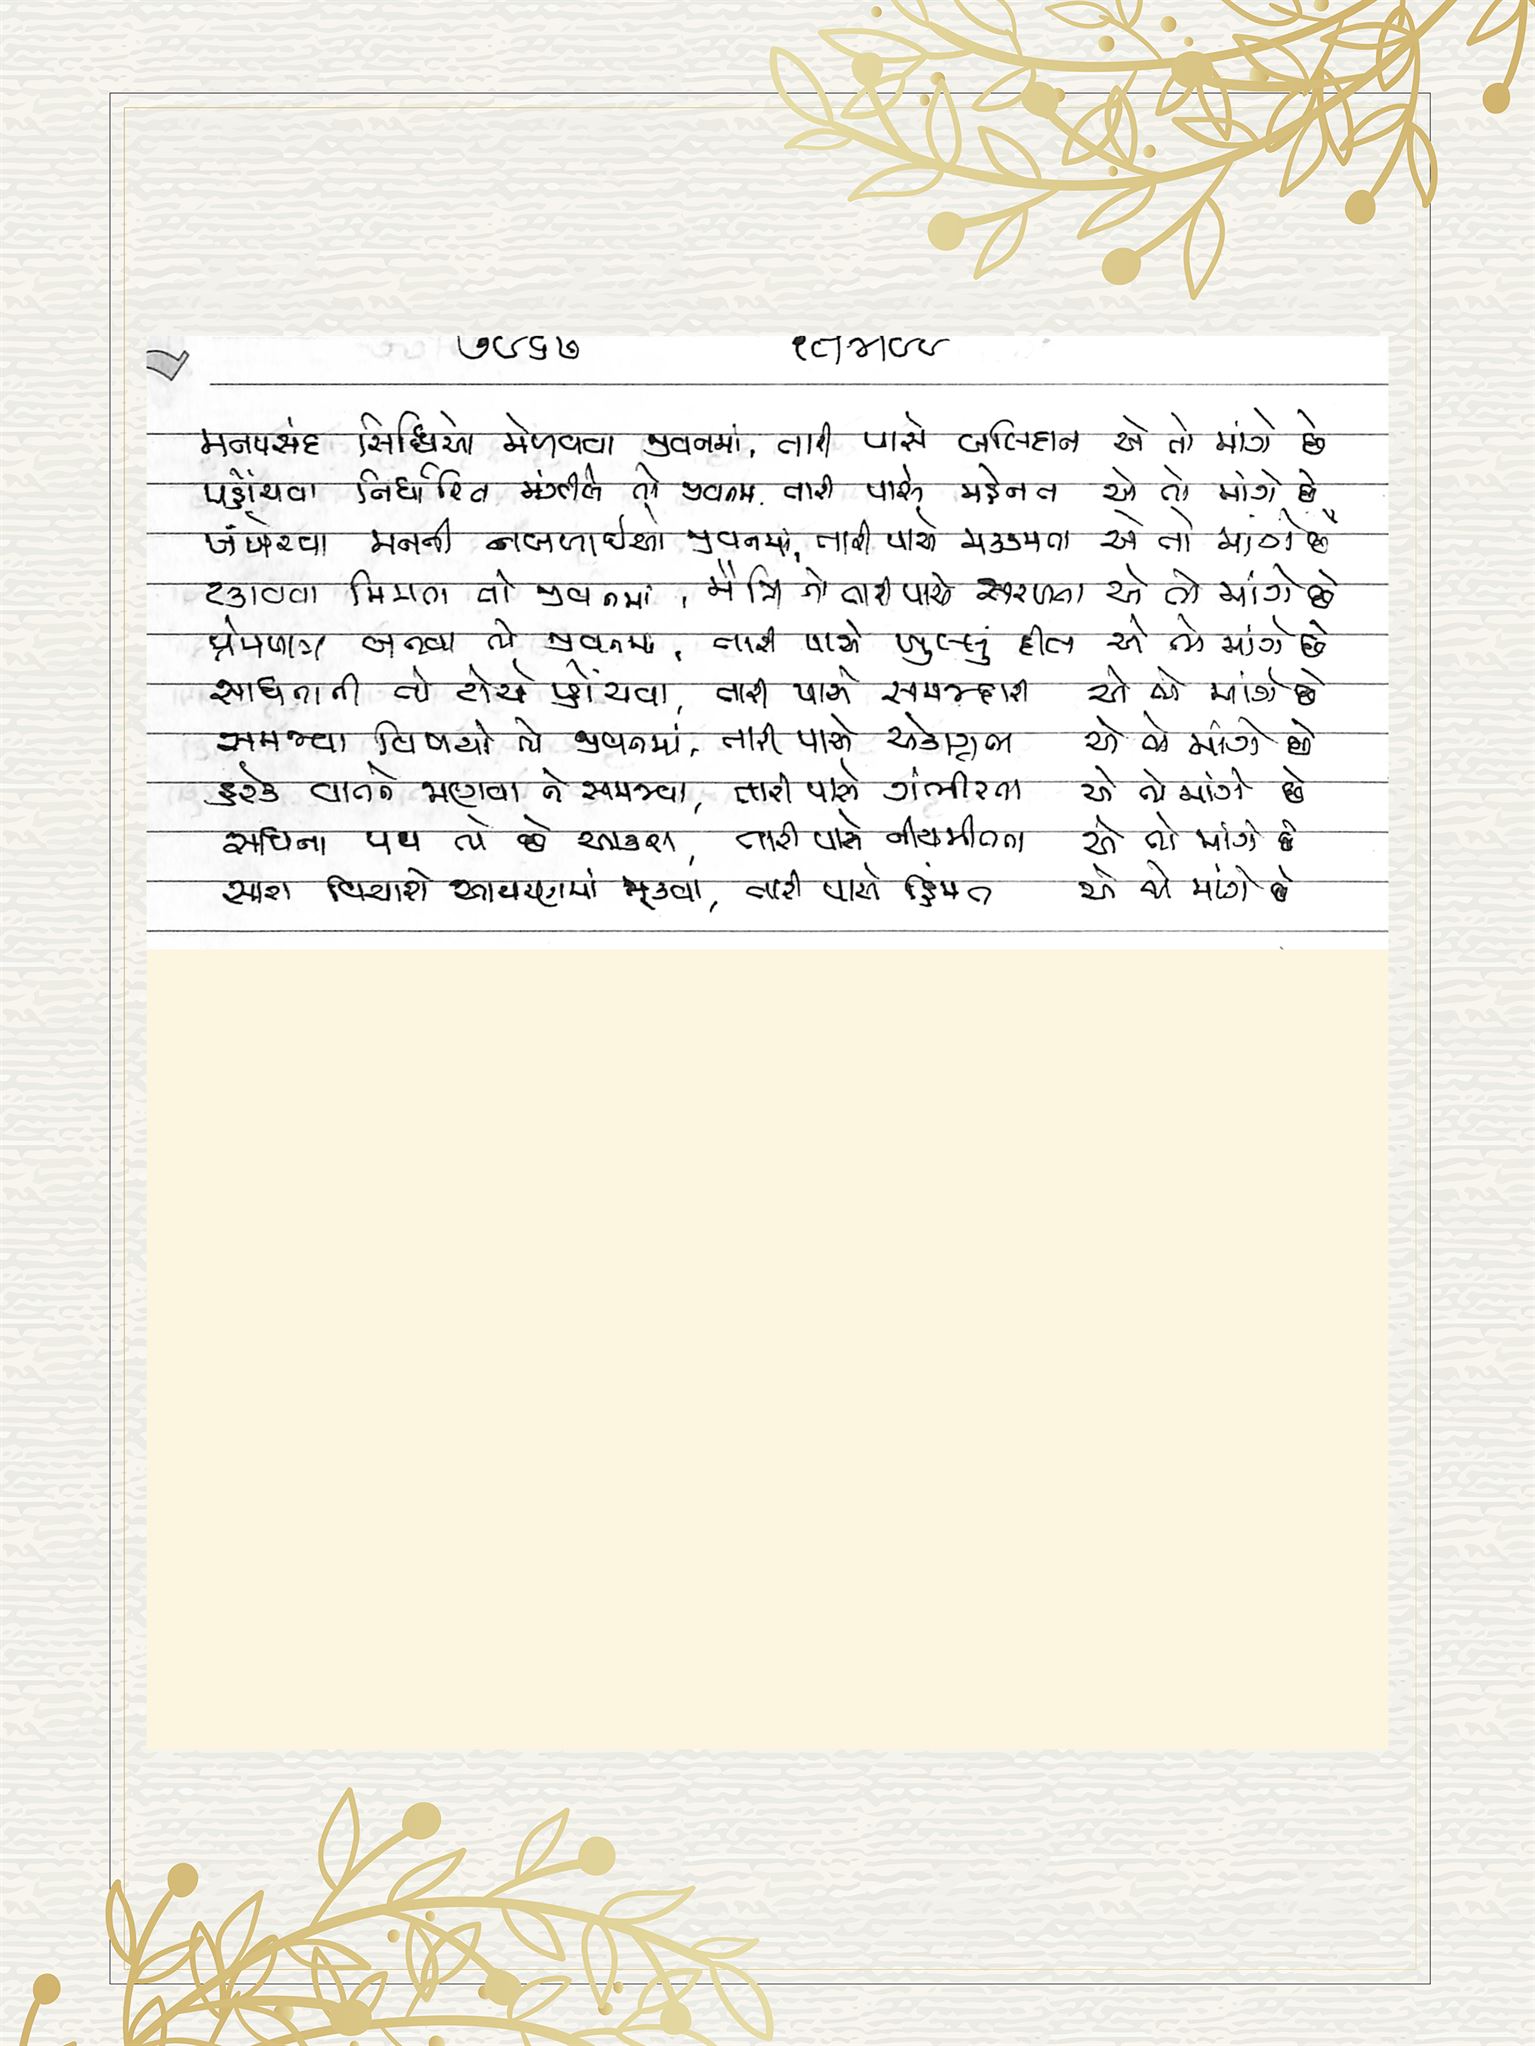 મનપસંદ સિધ્ધિઓ મેળવવા જીવનમાં, તારી પાસે બલિદાન એ તો માંગે છે
પહોંચવા નિર્ધારિત મંઝીલે તો જીવનમાં, તારી પાસે મહેનત એ તો માંગે છે
ખંખેરવા મનની નબળાઈઓ જીવનમાં, તારી પાસે મક્કમતા એ તો માંગે છે
ટકાવવા મિત્રતા તો જીવનમાં, મૈત્રિ તો તારી પાસે સરળતા એ તો માંગે છે
પ્રેમપાત્ર બનવા તો જીવનમાં, તારી પાસે ખુલ્લું દીલ એ તો માંગે છે
સાધનાની તો ટોચે પ્હોંચવા, તારી પાસે સમજદારી એ તો માંગે છે
સમજવા વિષયો તો જીવનમાં, તારી પાસે એકાગ્રતા એ તો માંગે છે
હરેક વાતને માણવા ને સમજવા, તારી પાસે ગંભીરતા એ તો માંગે છે
સધિના પથ તો છે આકરા, તારી પાસે નીયમીતતા એ તો માંગે છે
સારા વિચારો આચરણમાં મૂકવા, તારી પાસે હિંમત એ તો માંગે છે